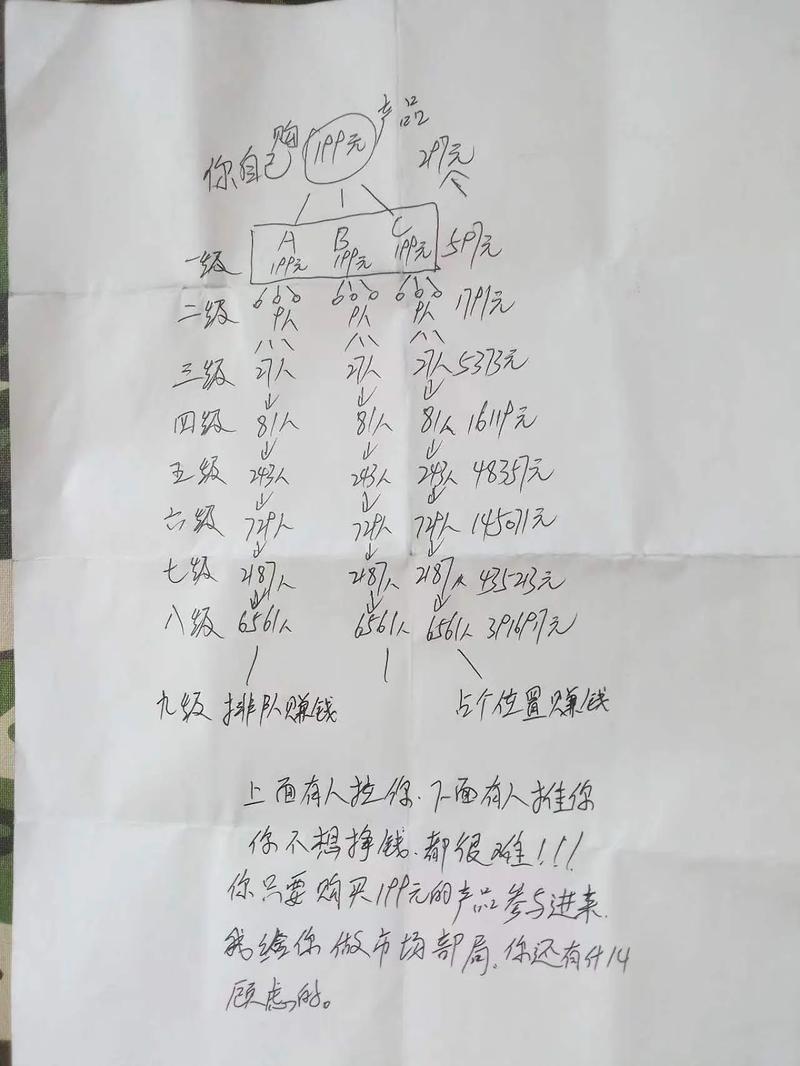 产品
你自己购 199元 297元
A B C
一级 199元 199元 199元 597元
二级 9人 9人 9人 1791元
三级 27人 27人 27人 5373元
四级 81人 81人 81人 16119元
五级 243人 243人 243人 48357元
六级 729人 729人 729人 145071元
七级 2187人 2187人 2187人 435213元
八级 6561人 6561人 6561人 391697元
九级 排队赚钱 占个位置赚钱
上面有人拉你.下面有人推你
你不想挣钱.都很难!!!
你只要购买199元的产品参与进来.
我给你做市场部局.你还有什么
顾虑的。